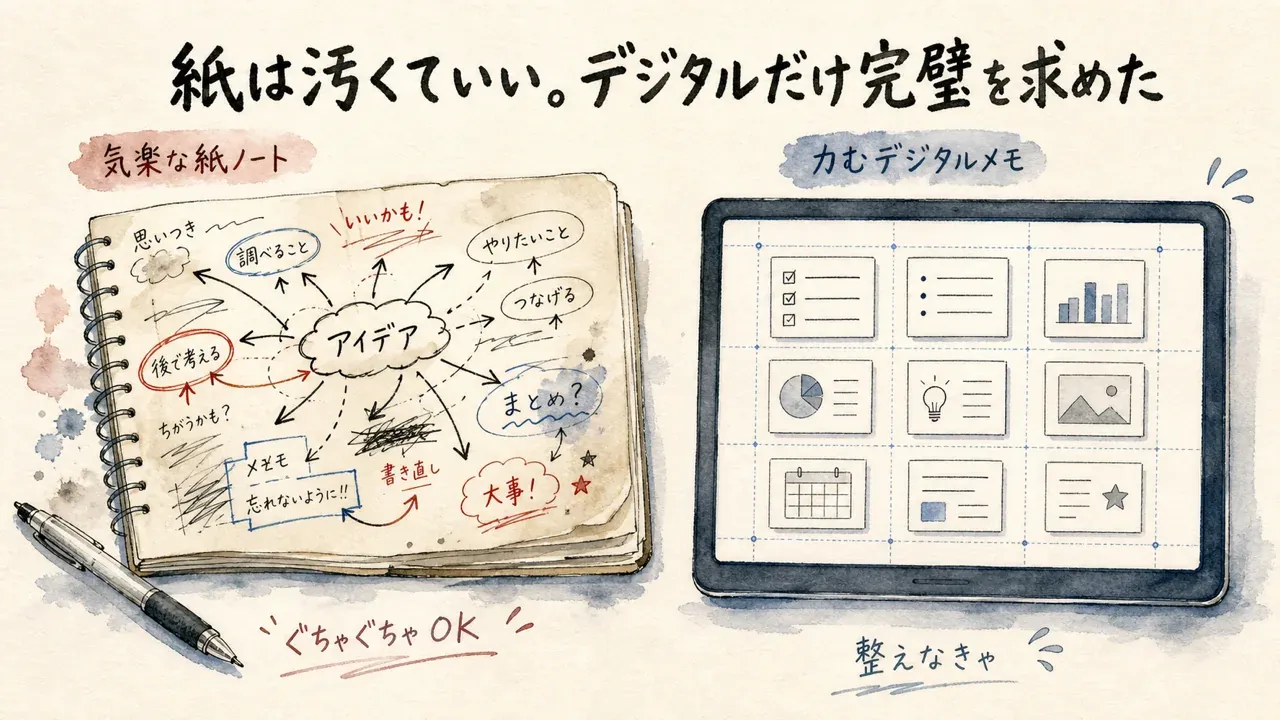 紙は汚くていい。デジタルだけ完璧を求めた
気楽な紙ノート
思いつき
調べること
いいかも!
やりたいこと
つなげる
アイデア
後で考える
ちがうかも?
まとめ?
メモ
忘れないように!!
書き直し
大事!
ぐちゃぐちゃ OK
力むデジタルメモ
整えなきゃ